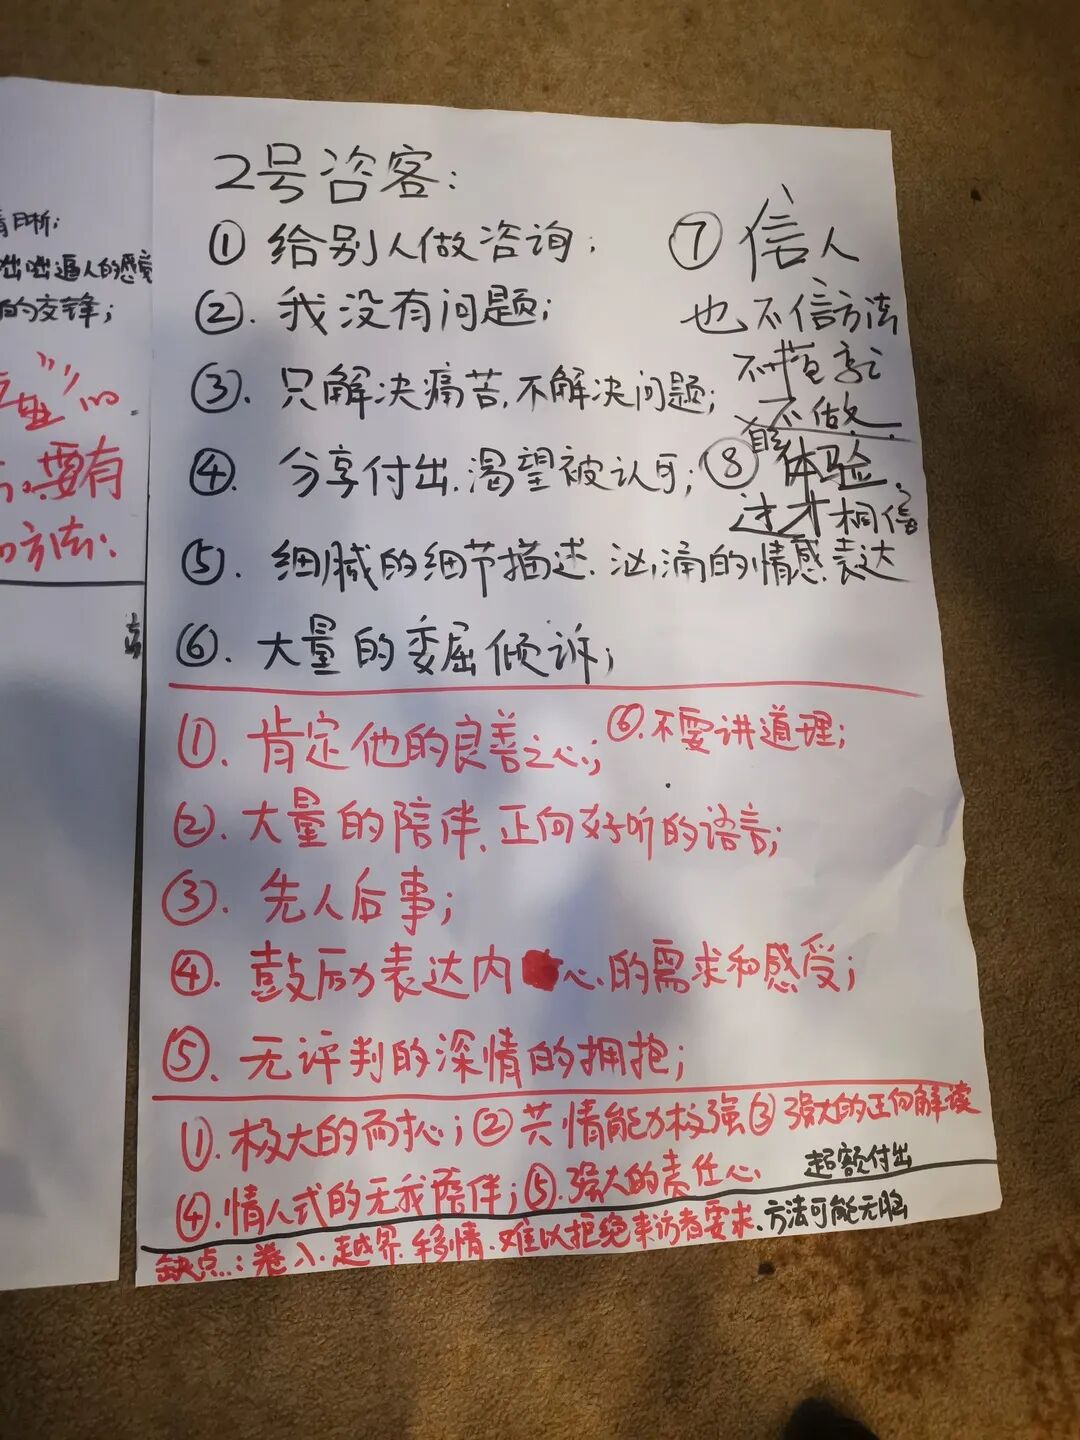 晴日晰;
咄咄逼人的感受
的交锋;
的
要有
方法:
2号咨客:
① 给别人做咨询;
②. 我没有问题;
③. 只解决痛苦,不解决问题;
④. 分享付出.渴望被认可;
⑤. 细腻的细节描述.汹涌的情感表达
⑥. 大量的委屈倾诉;
⑦ 信人
也不信方法
不做
⑧ 体验
过才相信
①. 肯定他的良善之心;
⑥.不要讲道理;
②. 大量的陪伴.正向好听的语言;
③. 先人后事;
④. 鼓励表达内心.的需求和感受;
⑤. 无评判的深情的拥抱;
①. 极大的耐心;②共情能力极强③ 强大的正向解读
④.情人式的无我陪伴;⑤.强大的责任心.
超额付出
缺点:卷入.越界.移情.难以拒绝来访者要求.方法可能无脑